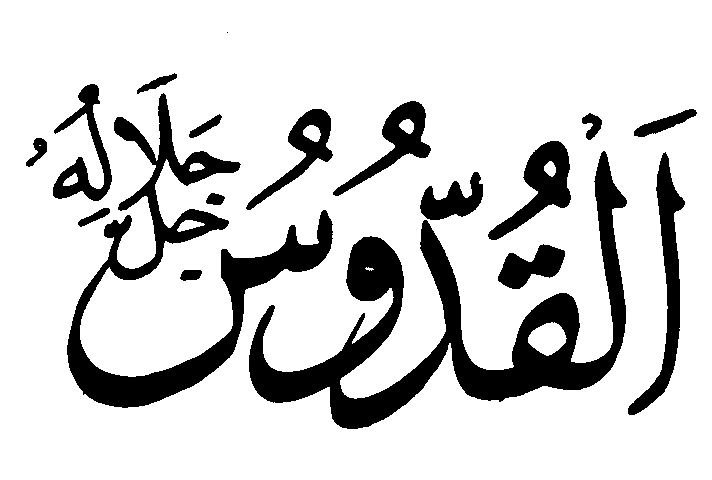 اَلْقُدُّوسُ
جَلَّ جَلَالُهُ